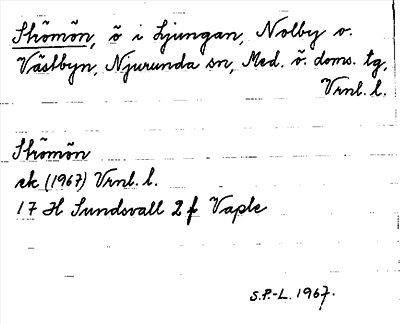 Strömön, ö i Ljungan, Nolby o.
Västbyn, Njurunda sn, Med. ö. doms. tg,
Vrnl. l.
Strömön
ek (1967) Vrnl. l.
17 H Sundsvall 2 f Vaple
S.P.-L. 1967.